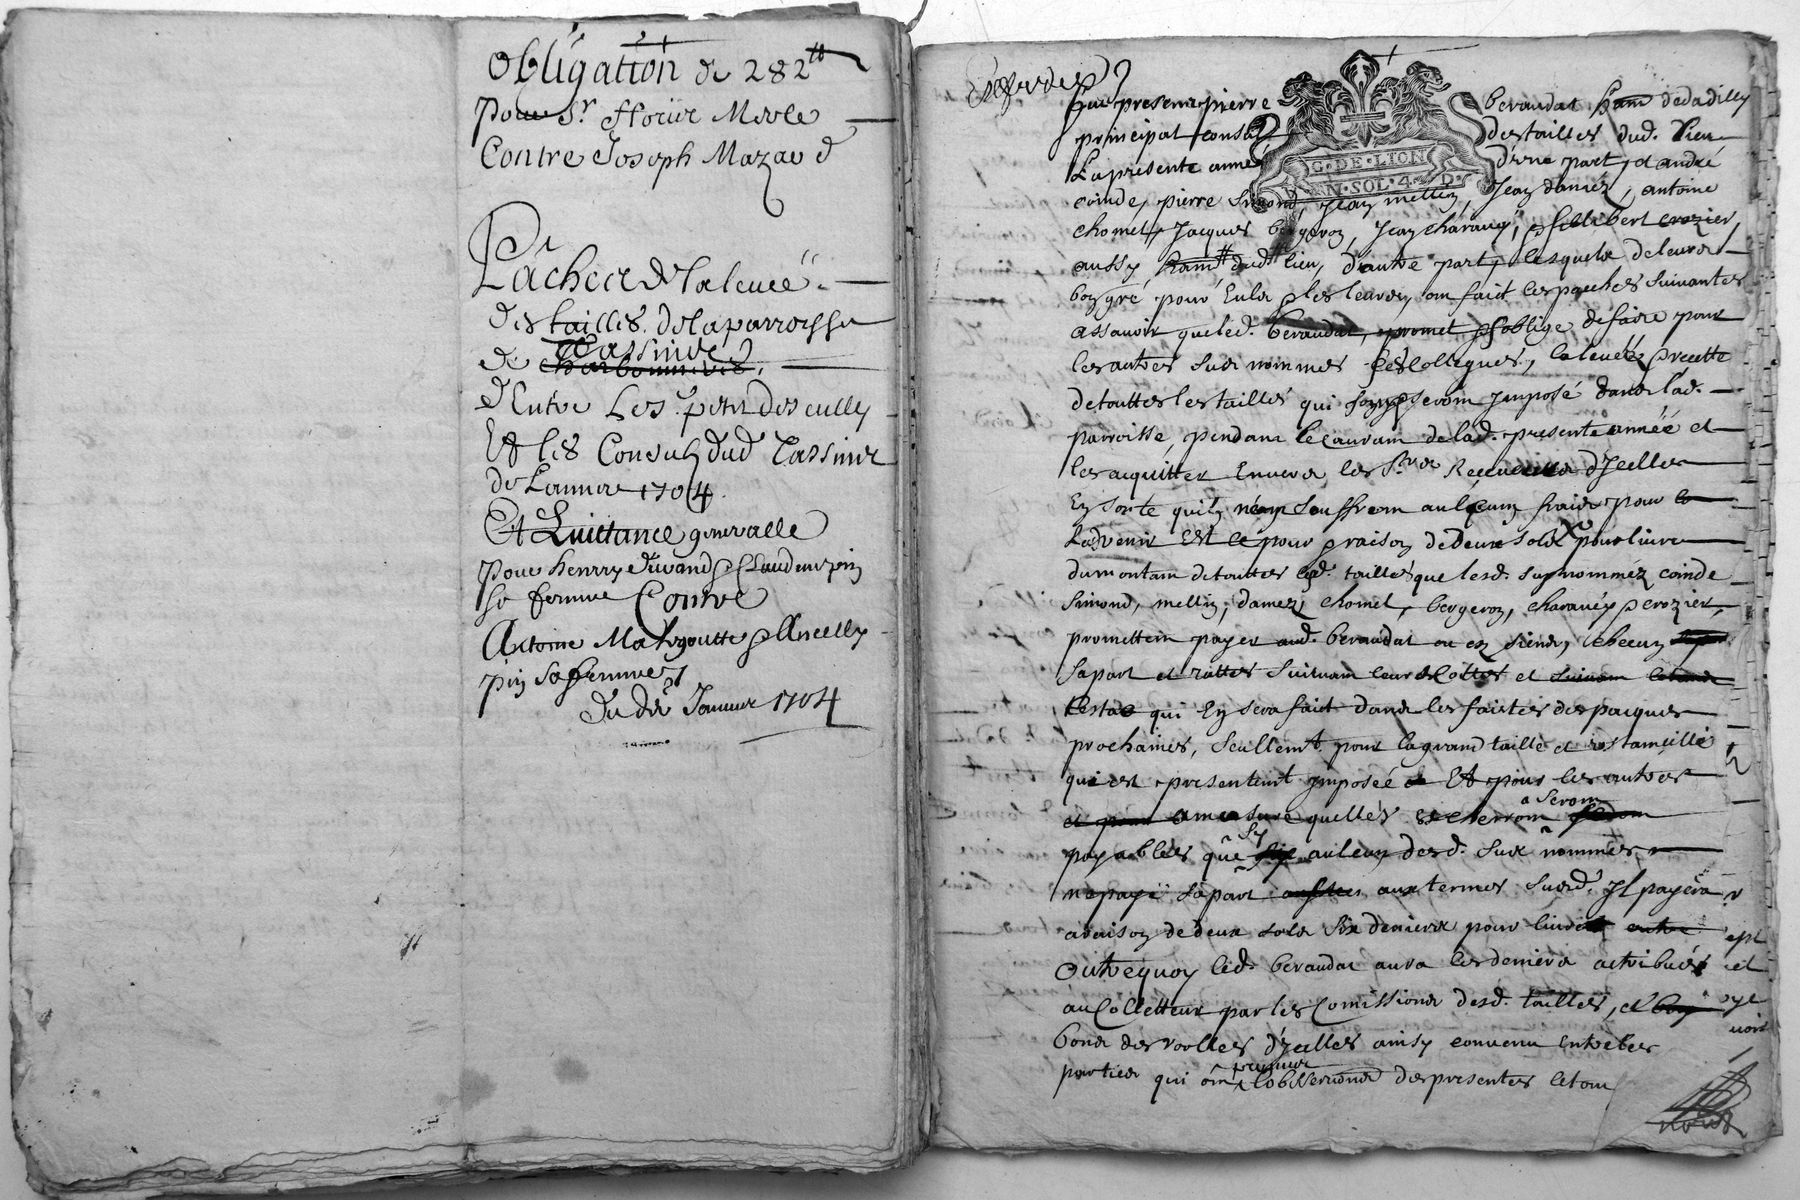 Obligation de 282
Pour Sr. fflorie Merle
Contre Joseph Mazard
Pacher de la levée
des tailles de la parroisse
Tassinde
de
d'Entre Le Sr. petit des cully
Et les Consuls dud Tassinde
de L'année 1704
Et Quittance generalle
pour henrry durand & Claudine pin
sa femme Contre
Antoine Malgoutte & Ancelly
pin sa femme
du dix Janvier 1704
Que presents pierre beraudat ham dedadilly
principal consul des tailles dud. lieu
La presente année d'une part, et andré
G. DE LION
N. SOL. 4. D.
coinde, pierre Simond, Jean mellin, Jean damez, antoine
chomel, Jacques bergeron, Jean charaucy, & philibert crozier,
aussy ham dud lieu, d'autre part, lesquels de leur
bon gré pour Eulx & les leurs, ont faict les paches suivantes
assavoir que led. beraudat, promet & soblige de faire pour
les autres sus nommes ses Collegues, la levée & recette
de touttes les tailles qui sont & seront Imposé dans lad.
parroisse, pendant le courant de lad. presente année et
les acquitter Envers les Srs Receveurs d'Icelles
En sorte quils nen souffrent aulcuns fraix pour
Ladvenir Est ce pour & raison de deux solz pour livre
du montant de touttes lesd. tailles que lesd. susnommez coinde
Simond, mellin, damez, chomel, bergeron, charaucy & crozier,
promettent payer aud. beraudat ou es siens, chacun
sa part et rattes suivant leurs Cottes et
qui En sera faict dans les faistes des pacques
prochaines, seullemt. pour la grand taille et
qui est presentemt Imposée Et pour les autres
a mesure quelles escherront seront
payables que sy aulcun desd. sus nommés
na payé sa part aux termes susd. Il payera
a raison de deux solz six deniers pour livre
outre quoy led. beraudat aura les deniers attribués
au Colletteur par les Comissions desd. tailles, et
bons des roolles d'Icelles ainsy convenu Entre les
parties qui ont promis l'observance des presentes le tout